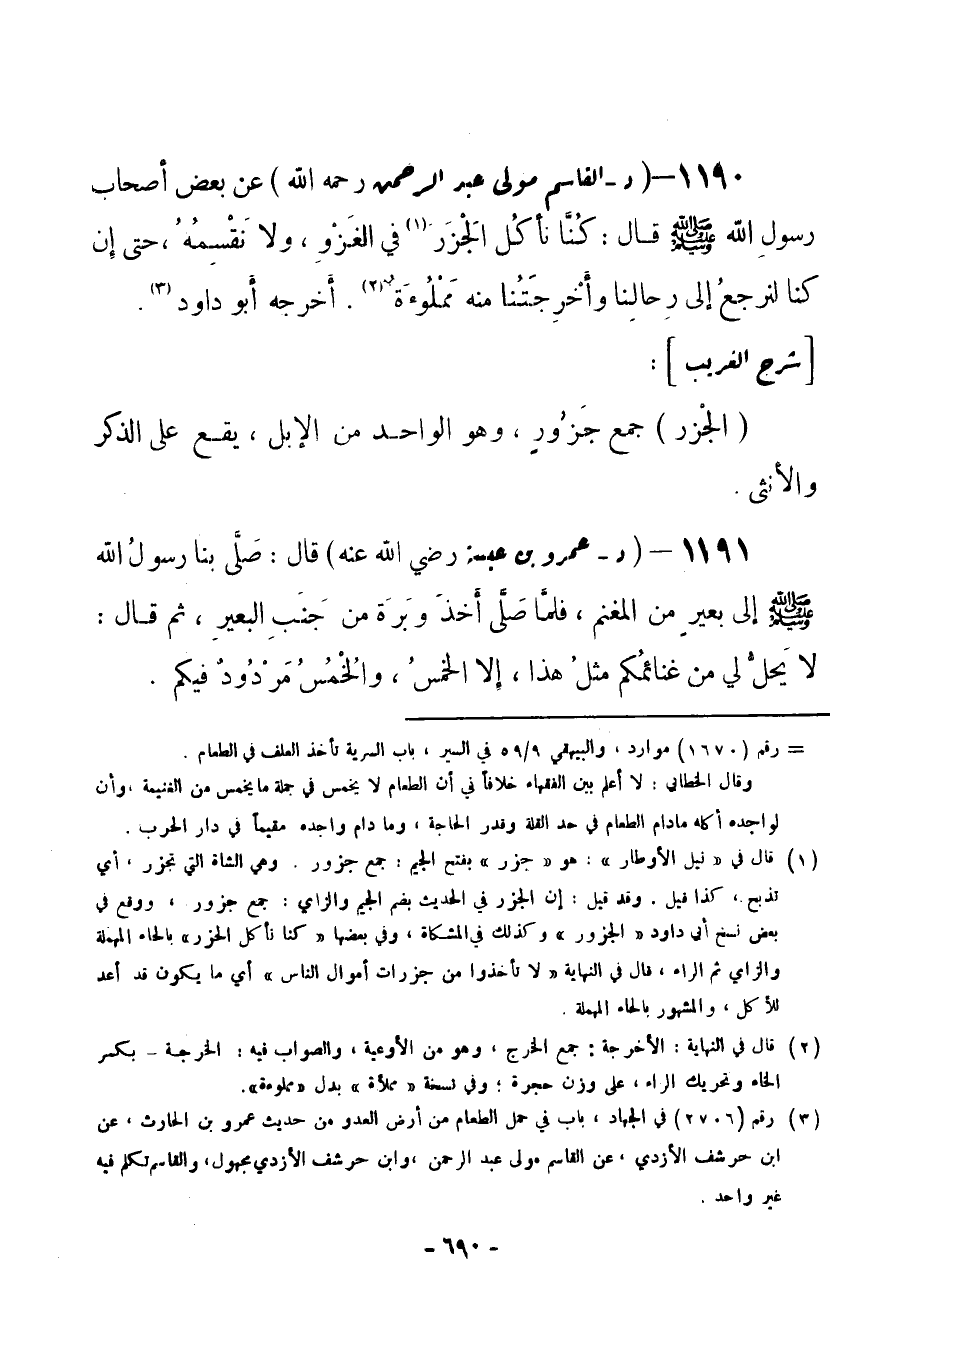 ١١٩٠ – ( د - القاسم مولى عبد الرحمن رحمه الله ) عن بعض أصحاب
رسولِ الله ﷺ قال : كُنَّا نأكُل الجَزَرَ (١) في الغَزْوِ ، ولا نَقْسِمُهُ ، حتى إن
كنا لنرجعُ إلى رِحالِنا وأَخْرِجَتُنا منه مَمْلُوءَةٌ (٢) . أخرجه أبو داود (٣) .
[ شرح الغريب ] :
( الجْزر ) جمع جَزُورٍ ، وهو الواحد من الإبل ، يقع على الذكر
والأنثى .
١١٩١ – ( د - عمرو بن عبسة رضي الله عنه ) قال : صَلَّى بنا رسولُ الله
ﷺ إلى بعيرٍ من المغنم ، فلمَّا صَلَّى أَخذَ وَبَرَةً من جَنَبِ البعيرِ ، ثم قال :
لا يَحلُّ لي من غنائمُكم مثلُ هذا ، إلا الخمسُ ، والُخْمُسُ مَرْدُودٌ فيكم .
= رقم (١٦٧٠) موارد ، والبيهقي ٥٩/٩ في السير ، باب السرية تأخذ العلف في الطعام .
وقال الخطابي : لا أعلم بين الفقهاء خلافاً في أن الطعام لا يخمس في جملة ما يخمس من الغنيمة ، وأن
لواجده أكله مادام الطعام في حد القلة وقدر الحاجة ، وما دام واجده مقيماً في دار الحرب .
(١) قال في « نيل الأوطار » : هو « جزر » بفتح الجيم : جمع جزور . وهي الشاة التي تجزر ، أي
تذبح ، كذا قيل . وقد قيل : إن الجزر في الحديث بضم الجيم والزاي : جمع جزور ، ووقع في
بعض نسخ أبي داود « الجزور » وكذلك في المشكاة ، وفي بعضها « كنا نأكل الحزر » بالحاء المهملة
والزاي ثم الراء ، قال في النهاية « لا تأخذوا من جزرات أموال الناس » أي ما يكون قد أعد
للأكل ، والمشهور بالحاء المهملة .
(٢) قال في النهاية : الأخرجة : جمع الخرج ، وهو من الأوعية ، والصواب فيه : الخرجة – بكسر
الخاء وتحريك الراء ، على وزن حجرة ؛ وفي نسخة « مملأة » بدل « مملوءة» .
(٣) رقم (٢٧٠٦) في الجهاد ، باب في حمل الطعام من أرض العدو من حديث عمرو بن الحارث ، عن
ابن حرشف الأزدي ، عن القاسم مولى عبد الرحمن ، وابن حرشف الأزدي مجهول، والقاسم تكلم فيه
غير واحد .
- ٦٩٠ -